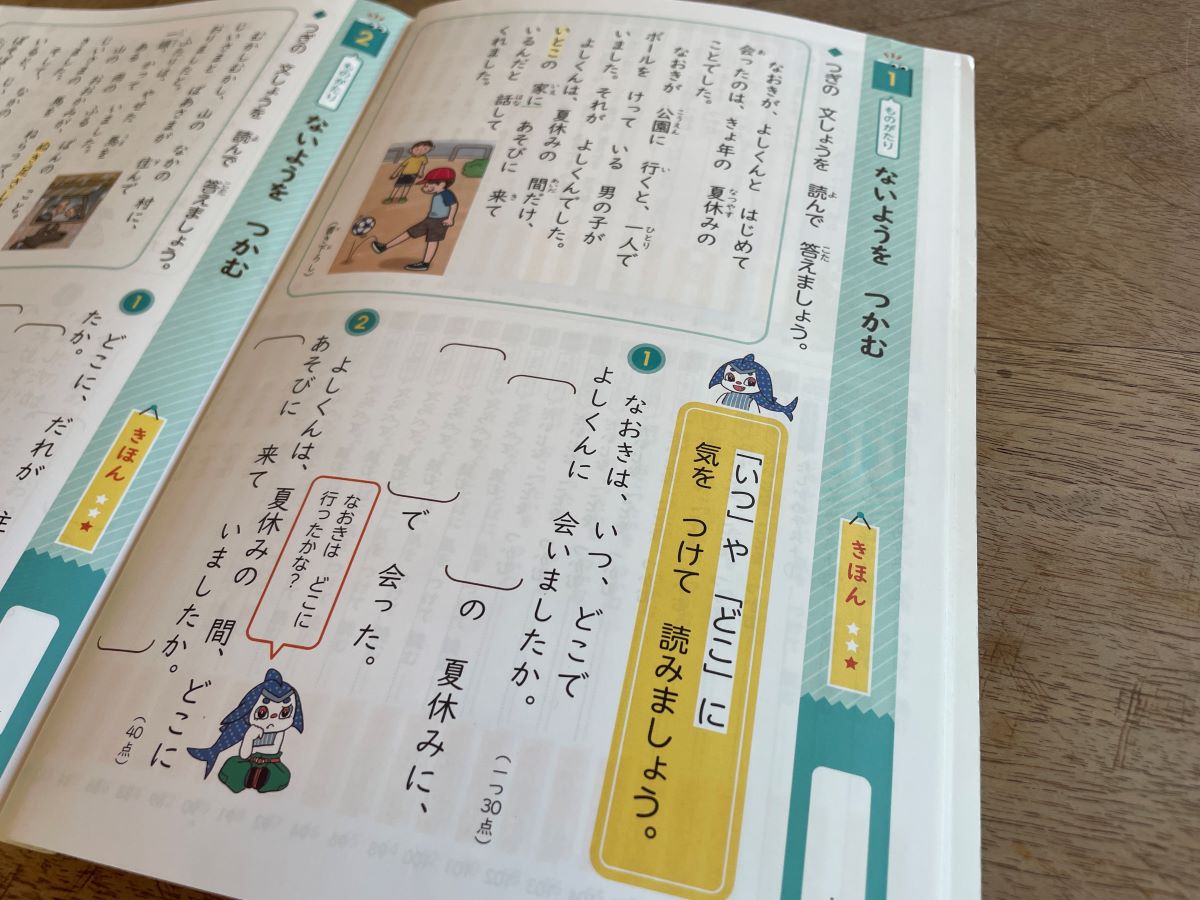 1
ものがたり
ないようを つかむ
きほん
つぎの 文しょうを 読んで 答えましょう。
なおきが、よしくんと はじめて
会ったのは、きょ年の 夏休みの
ことでした。
なおきが 公園に 行くと、一人で
ボールを けって いる 男の子が
いました。それが よしくんでした。
よしくんは、夏休みの 間だけ、
いとこの 家に あそびに 来て
いるんだと 話して
くれました。
(書き下ろし)
「いつ」や「どこ」に
気を つけて 読みましょう。
1
なおきは、いつ、どこで
よしくんに 会いましたか。
(一つ30点)
の 夏休みに、
で 会った。
なおきは どこに
行ったかな?
2
よしくんは、夏休みの 間、どこに
あそびに 来て いましたか。
(40点)
2
ものがたり
ないようを つかむ
きほん
つぎの 文しょうを 読んで 答えましょう。
むかしむかし、山の なかの 村に、
じいさまと ばあさまが 住んで
おりました。
1
どこに、だれが
たか。